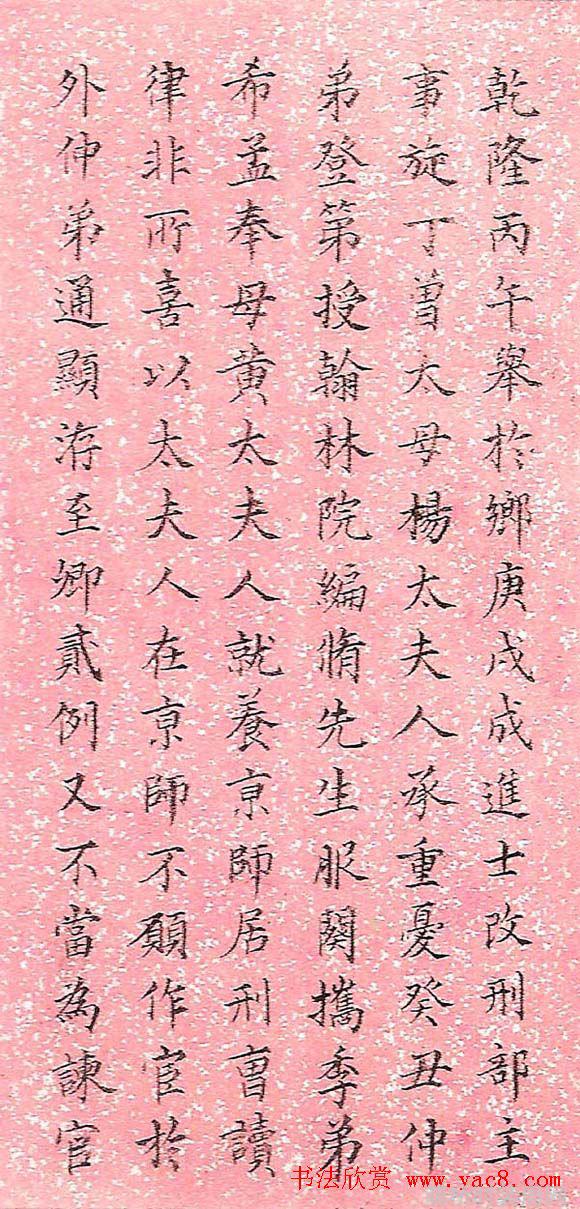 乾隆丙午舉於鄉庚戌成進士改刑部主
事旋丁曾太母楊太夫人承重憂癸丑仲
弟登第授翰林院編脩先生服闋攜季弟
希孟奉母黄太夫人就養京師居刑曹讀
律非所喜以太夫人在京師不願作官於
外仲弟通顯洊至卿貳例又不當為諫官
书法欣赏 www.yac8.com